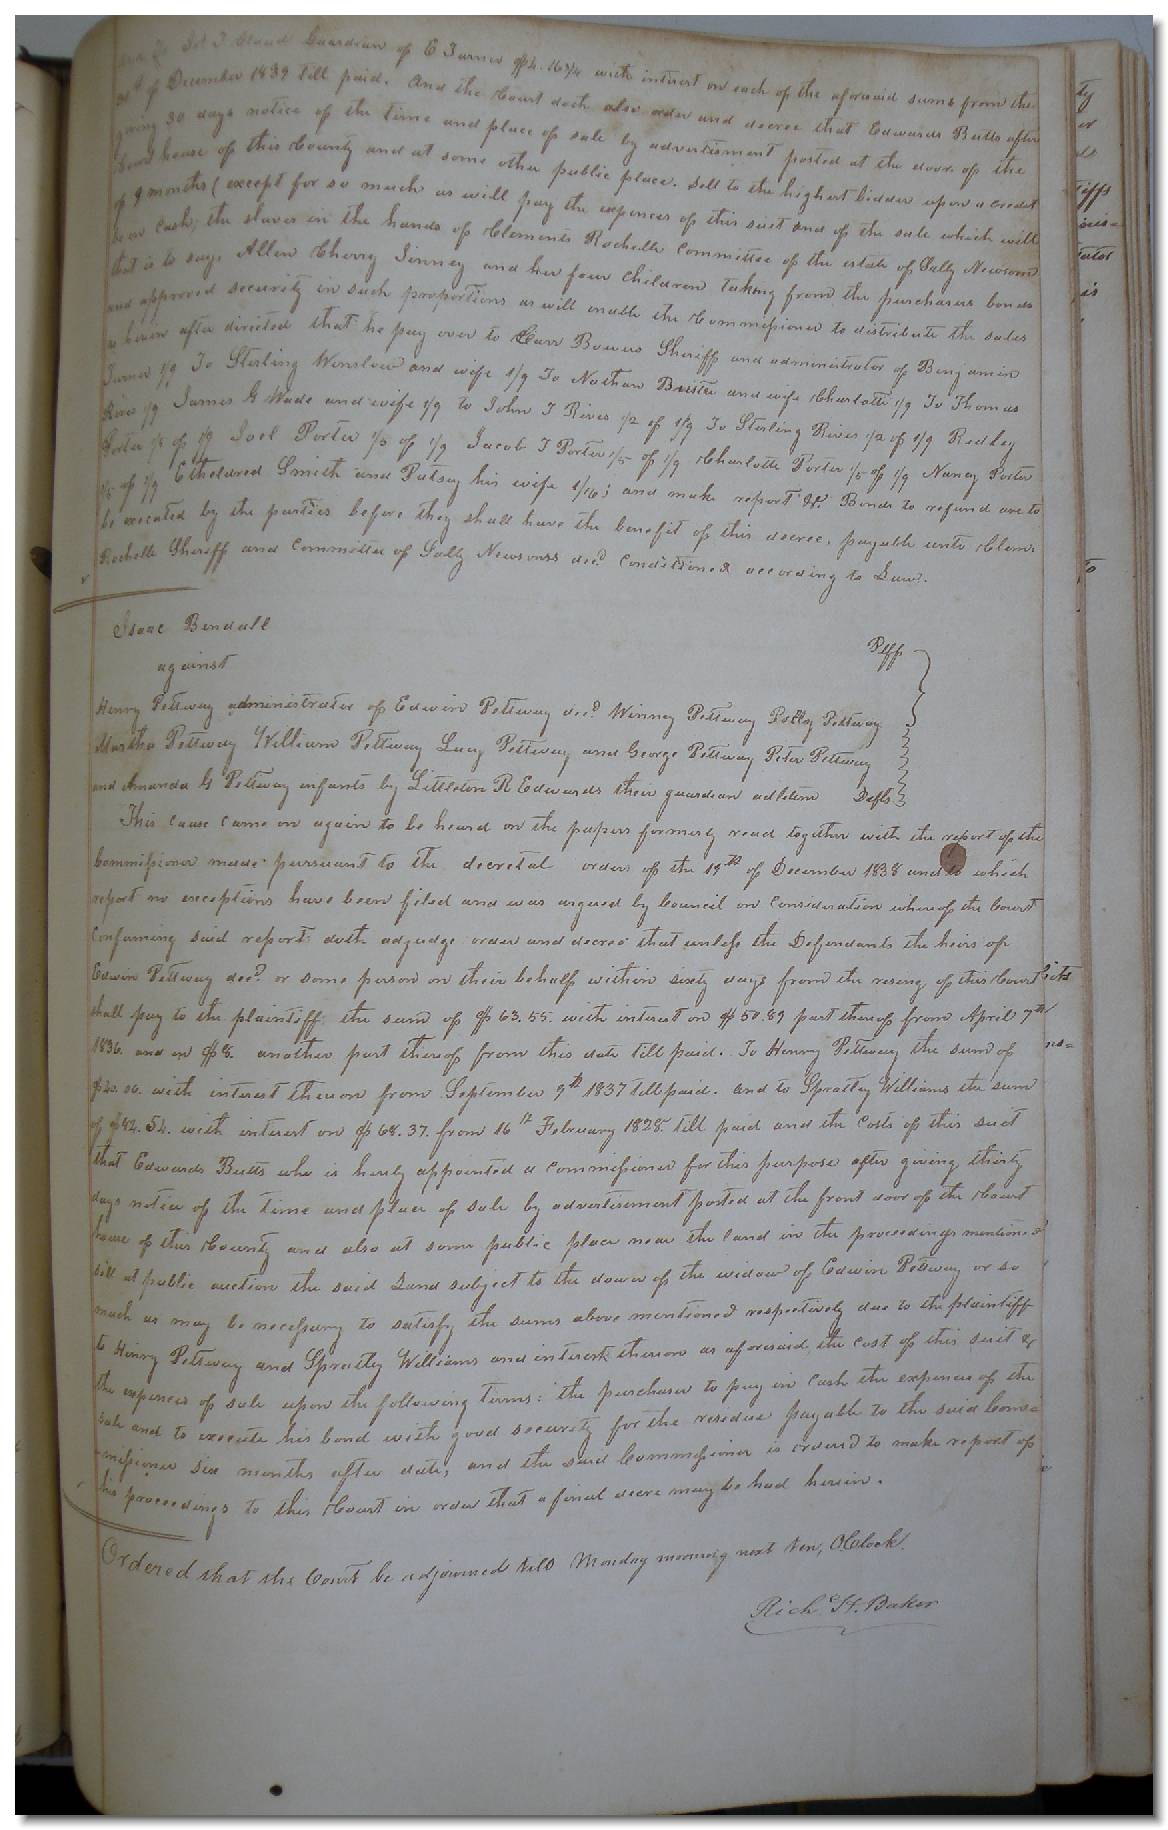 Jos T. Claud Guardian of E Turner $4.16 3/4 with interest on each of the aforesaid sums from the
of December 1839 till paid. And the Court doth also order and decree that Edwards Butts after
giving 30 days notice of the time and place of sale by advertisment posted at the door of the
Court house of this County and at some other public place. Sell to the highest bidder upon a credit
of 9 months (except for so much as will pay the expences of this suit and of the sale which will
be in Cash, the slaves in the hands of Clements Rochelle Committee of the estate of Sally Newsom
that is to say, Allen Cherry Jinney and her four Children taking from the purchasers bonds
and approved security in such proportions as will enable the Commissioner to distribute the sales
as herein after directed that he pay over to Carr Bowers Sheriff and administrator of Benjamin
Turner 1/9 To Sterling Winslow and wife 1/9 To Nathan and wife Charlotte 1/9 To Thomas
Rives 1/9 James G Wade and wife 1/9 to John T Rives 1/2 of 1/9 To Sterling Rives 1/2 of 1/9 Redley
Porter 1/5 of 1/9 Joel Porter 1/5 of 1/9 Jacob T Porter 1/5 of 1/9 Charlotte Porter 1/5 of 1/9 Nancy Porter
1/5 of 1/9 Etheldred Smith and Patsey his wife and make report &c. Bonds to refund are to
be executed by the parties before they shall have the benefit of this decree, payable unto Clem:
Rochelle Sheriff and Committee of Sally Newsoms decd. Conditioned according to Law.
Isaac Bendall Plff
against
Henry Pettway administrator of Edwin Pettway decd. Winney Pettway Polly Pettway
Martha Pettway William Pettway Lucy Pettway and George Pettway Peter Pettway
and Amanda G Pettway infants by Littleton R Edwards their guardian adlitem Defts
This cause came on again to be heard on the papers formerly read together with the report of the
Commissioner made pursuant to the decretal orders of the 19th of December 1838 and to which
report no exceptions have been filed and was argued by Council on Consideration whereof the Court
Confirming said report doth adjudge order and decree that unless the Defendants the heirs of
Edwin Pettway decd. or some person on their behalf within sixty days from the rising of this Court
shall pay to the plaintiff the sum of $63.55. with interest on $50.89 part thereof from April 7th
1836. and on $8. another part thereof from this date till paid. To Henry Pettway the sum of
$20.06. with interest thereon from September 9th 1837 till paid. and to Spratley Williams the sum
of $82.54. with interest on $68.37. from 16th February 1828. till paid and the Costs of this suit
that Edwards Butts who is hereby appointed a commissioner for this purpose after giving thirty
days notice of the time and place of sale by advertisement posted at the front door of the Court
house of this County and also at some public place near the land in the proceedings mentioned
sell at public auction the said Land subject to the dower of the widow of Edwin Pettway or so
much as may be necessary to satisfy the sums above mentioned respectively due to the plaintiff
to Henry Pettway and Spratley Williams and interest thereon as aforesaid, the cost of this suit &
the expences of sale upon the following terms: the purchaser to pay in Cash the expences of the
sale and to execute his bond with good security for the residue payable to the said Com=
missioner six months after date, and the said Commissioner is order'd to make report of
his proceedings to this Court in order that a final decre may be had herein.
Ordered that the Court be adjourned till Monday morning next ten, OClock.
Richd. H. Baker